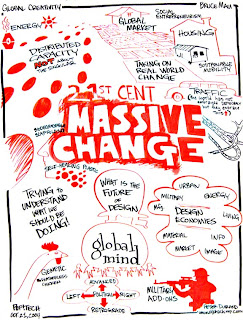 GLOBAL CREATIVITY
BRUCE MAU
ENERGY
SOCIAL
ENTREPRENEURISM
GLOBAL
MARKET
HOUSING
DISTRIBUTED
CAPACITY
NOT ABOUT
THE SINGULAR
TAKING ON
REAL WORLD
CHANGE
SUSTAINABLE
MOBILITY
TRAFFIC
21ST CENT
MASSIVE
CHANGE
SELF-HEALING PLASTIC
TRYING TO
UNDERSTAND
WHAT WE
SHOULD BE
DOING!
WHAT IS THE
FUTURE
OF
DESIGN?
URBAN
MILITARY
ENERGY
MFG
DESIGN
ECONOMIES
LIVING
MATERIAL
INFO
MARKET
IMAGE
global
mind
GENETIC
FEATHERLESS
CHICKEN
ADVANCED
LEFT
POLITICAL
RIGHT
RETROGRADE
MILITARY
ADD-ONS
POPTECH
OCT 21, 2004
PETER DURAND